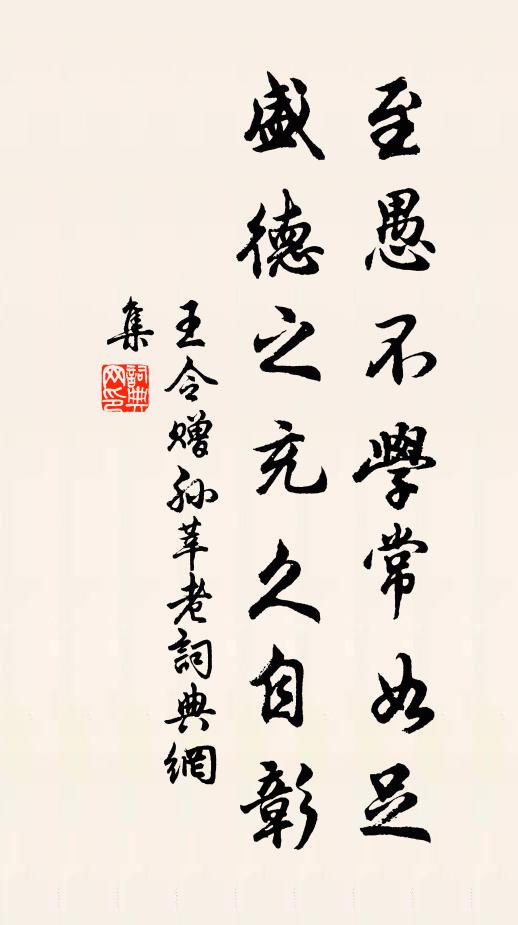 至愚不學常如足
盛德之充久自彰
王令赠孙莘老詞典網
集
詞典
网印